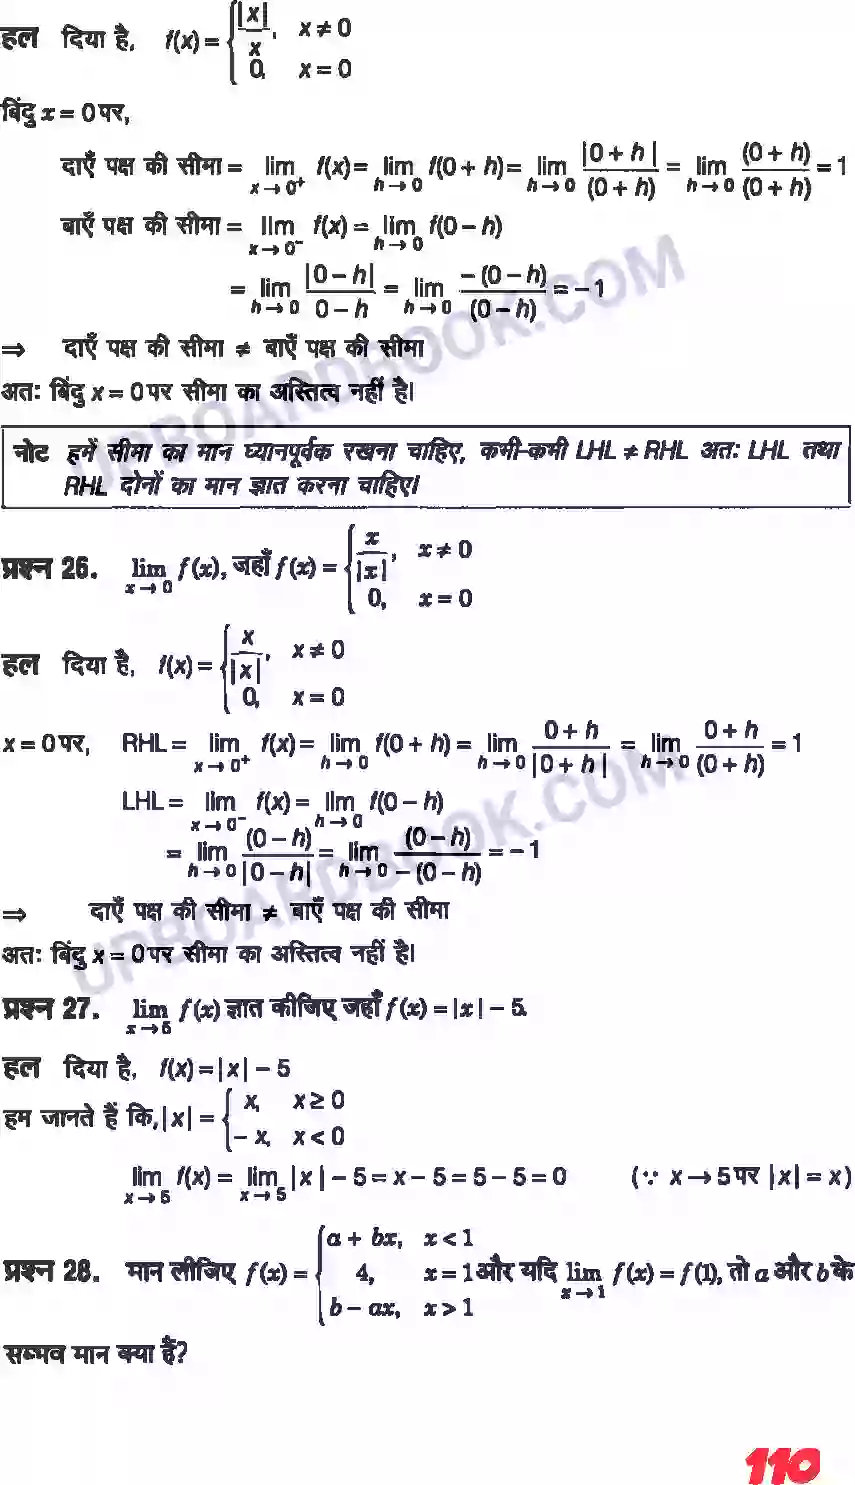 हल दिया है, f(x) = { |x|/x, x ≠ 0
0, x = 0
बिंदु x = 0 पर,
दाएँ पक्ष की सीमा = lim x→0⁺ f(x) = lim h→0 f(0 + h) = lim h→0 |0 + h|/(0 + h) = lim h→0 (0 + h)/(0 + h) = 1
बाएँ पक्ष की सीमा = lim x→0⁻ f(x) = lim h→0 f(0 – h)
= lim h→0 |0 – h|/0 – h = lim h→0 – (0 – h)/(0 – h) = – 1
⇒ दाएँ पक्ष की सीमा ≠ बाएँ पक्ष की सीमा
अतः बिंदु x = 0 पर सीमा का अस्तित्व नहीं है।
नोट हमें सीमा का मान ध्यानपूर्वक रखना चाहिए, कभी-कभी LHL ≠ RHL अतः LHL तथा
RHL दोनों का मान ज्ञात करना चाहिए।
प्रश्न 26. lim x→0 f(x), जहाँ f(x) = { x/|x|, x ≠ 0
0, x = 0
हल दिया है, f(x) = { x/|x|, x ≠ 0
0, x = 0
x = 0 पर, RHL = lim x→0⁺ f(x) = lim h→0 f(0 + h) = lim h→0 0 + h/|0 + h| = lim h→0 0 + h/(0 + h) = 1
LHL = lim x→0⁻ f(x) = lim h→0 f(0 – h)
= lim h→0 (0 – h)/|0 – h| = lim h→0 (0 – h)/– (0 – h) = – 1
⇒ दाएँ पक्ष की सीमा ≠ बाएँ पक्ष की सीमा
अतः बिंदु x = 0 पर सीमा का अस्तित्व नहीं है।
प्रश्न 27. lim x→5 f(x) ज्ञात कीजिए जहाँ f(x) = |x| – 5.
हल दिया है, f(x) = |x| – 5
हम जानते हैं कि, |x| = { x, x ≥ 0
– x, x < 0
lim x→5 f(x) = lim x→5 |x| – 5 = x – 5 = 5 – 5 = 0 (∵ x → 5 पर |x| = x)
प्रश्न 28. मान लीजिए f(x) = { a + bx, x < 1
4, x = 1 और यदि lim x→1 f(x) = f(1), तो a और b के
b – ax, x > 1
सम्भव मान क्या हैं?
110
UPBOARDBOOK.COM
UPBOARDBOOK.COM